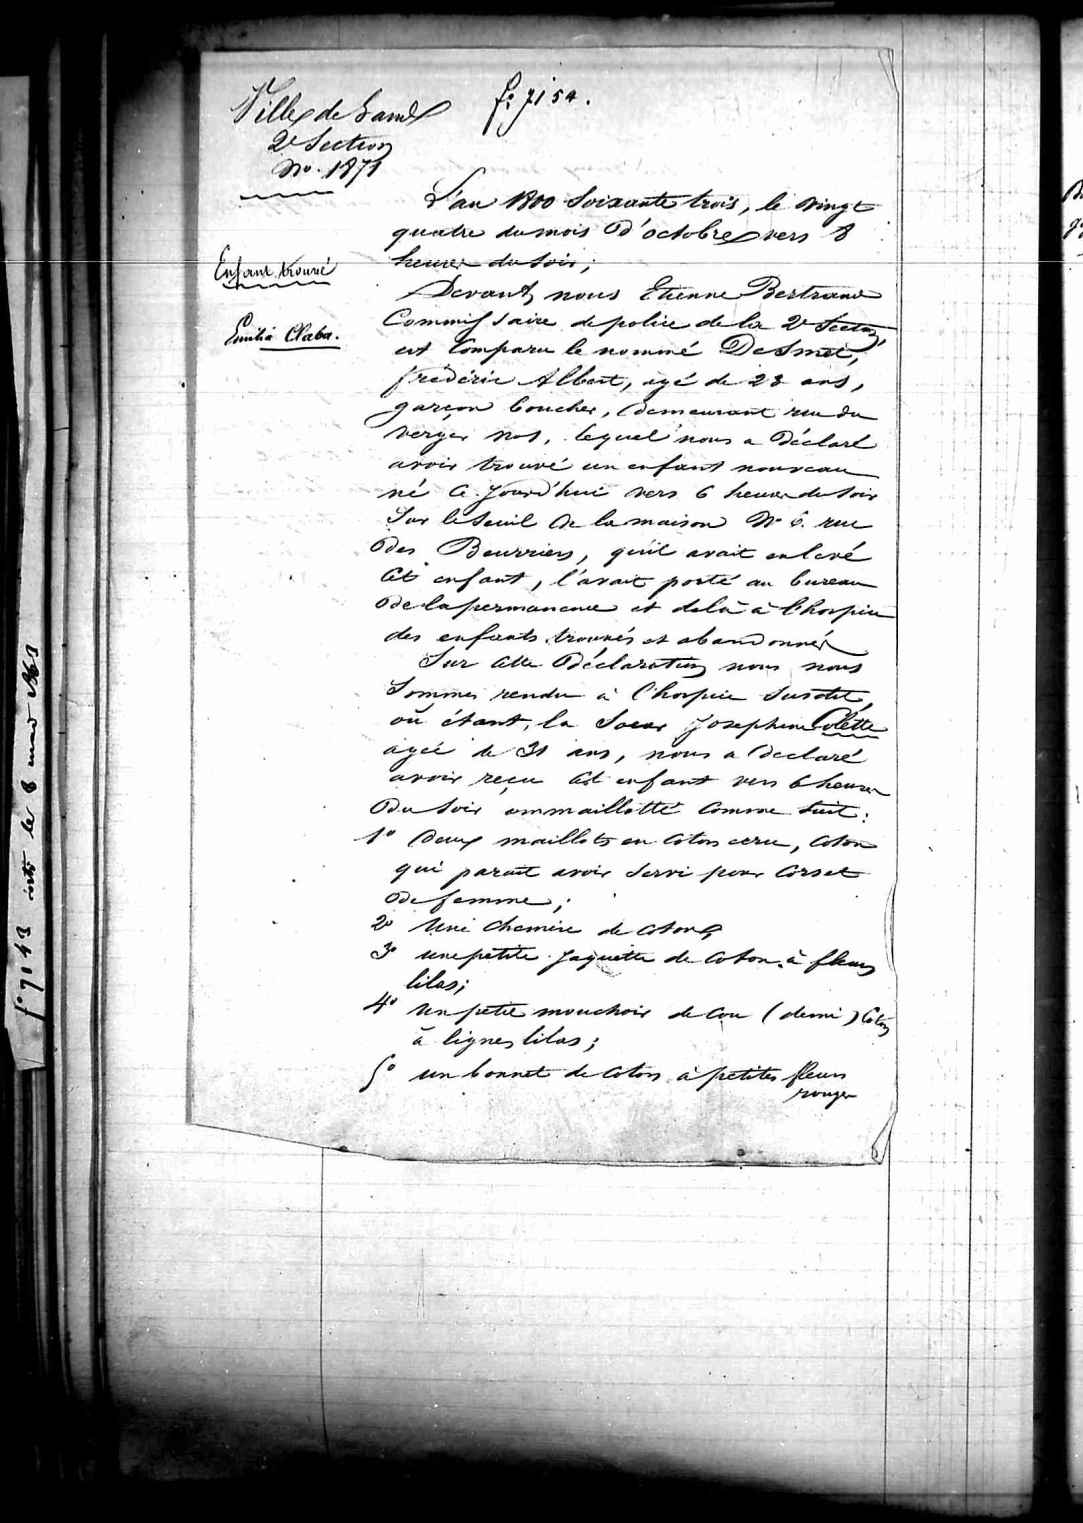 f° 7154.
Ville de Gand
2e Section
No. 1871
L'an 1800 soixante trois, le vingt
quatre du mois d'octobre vers 8
heures du soir;
Enfant trouvé
Devant nous Etienne Bertrand
Emilia Claba.
Commissaire de police de la 2e Section,
est comparu le nommé De Smet,
frédéric Albert, agé de 28 ans,
garçon boucher, demeurant rue du
verger, lequel nous a déclaré
avoir trouvé un enfant nouveau
né ce jourd'hui vers 6 heures du soir
sur le seuil de la maison No 6. rue
des Beurriers, qu'il avait enlevé
cet enfant, l'avait porté au bureau
de la permanence et delà à l'hospice
des enfants trouvés et abandonnés
Sur cette déclaration nous nous
sommes rendu à l'hospice susdit,
où étant, la Soeur Josephine Colette
agée de 31 ans, nous a declaré
avoir reçu cet enfant vers 6 heures
du soir emmaillotté comme suit:
1° deux maillots en coton ecru, coton
qui parait avoir servi pour corset
de femme;
2° Une chemise de coton,
3° une petite jaquette de coton à fleurs
lilas;
4° un petit mouchoir de cou (demi) coton
à lignes lilas;
5° un bonnet de coton à petites fleurs
rouges
f° 7143 le 8 1863